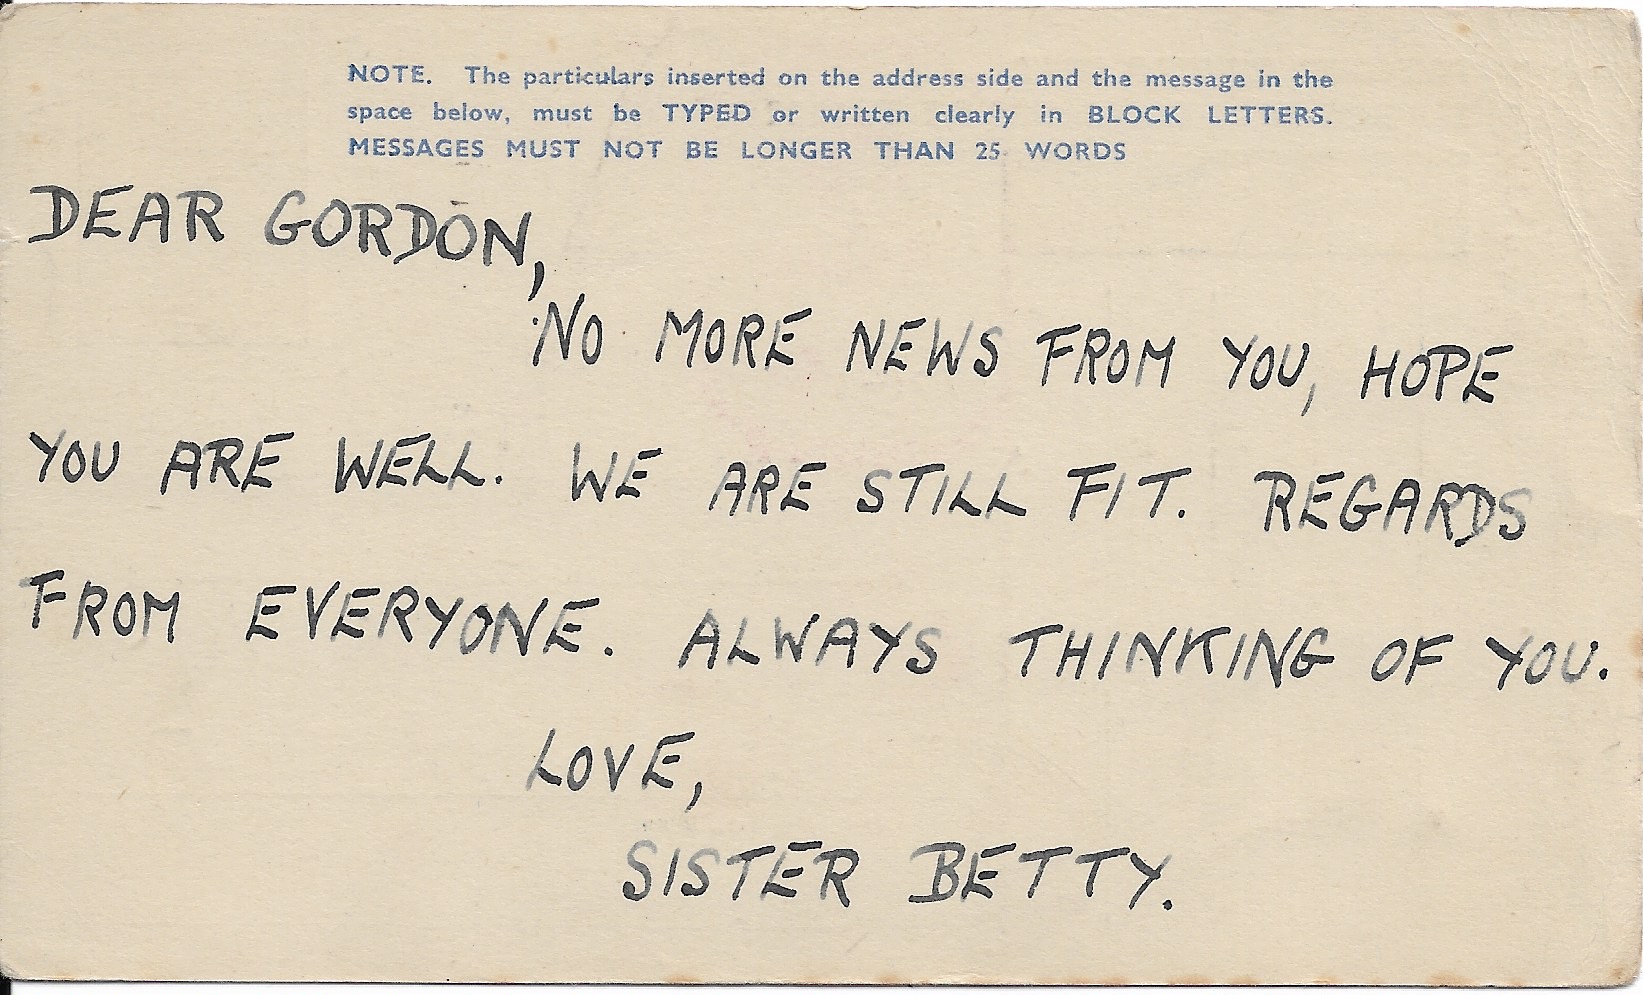 NOTE. The particulars inserted on the address side and the message in the
space below, must be TYPED or written clearly in BLOCK LETTERS.
MESSAGES MUST NOT BE LONGER THAN 25 WORDS
DEAR GORDON,
NO MORE NEWS FROM YOU, HOPE
YOU ARE WELL. WE ARE STILL FIT. REGARDS
FROM EVERYONE. ALWAYS THINKING OF YOU.
LOVE,
SISTER BETTY.